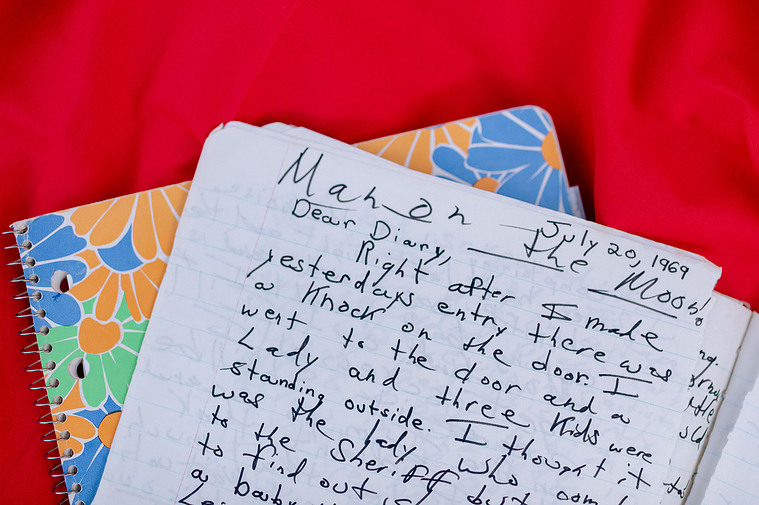 Man on the Moon!
July 20, 1969
Dear Diary,
Right after I made
yesterdays entry there was
a Knock on the door. I
went to the door and a
Lady and three Kids were
standing outside. I thought it
was the lady who
to the sheriff
to find out
a baby